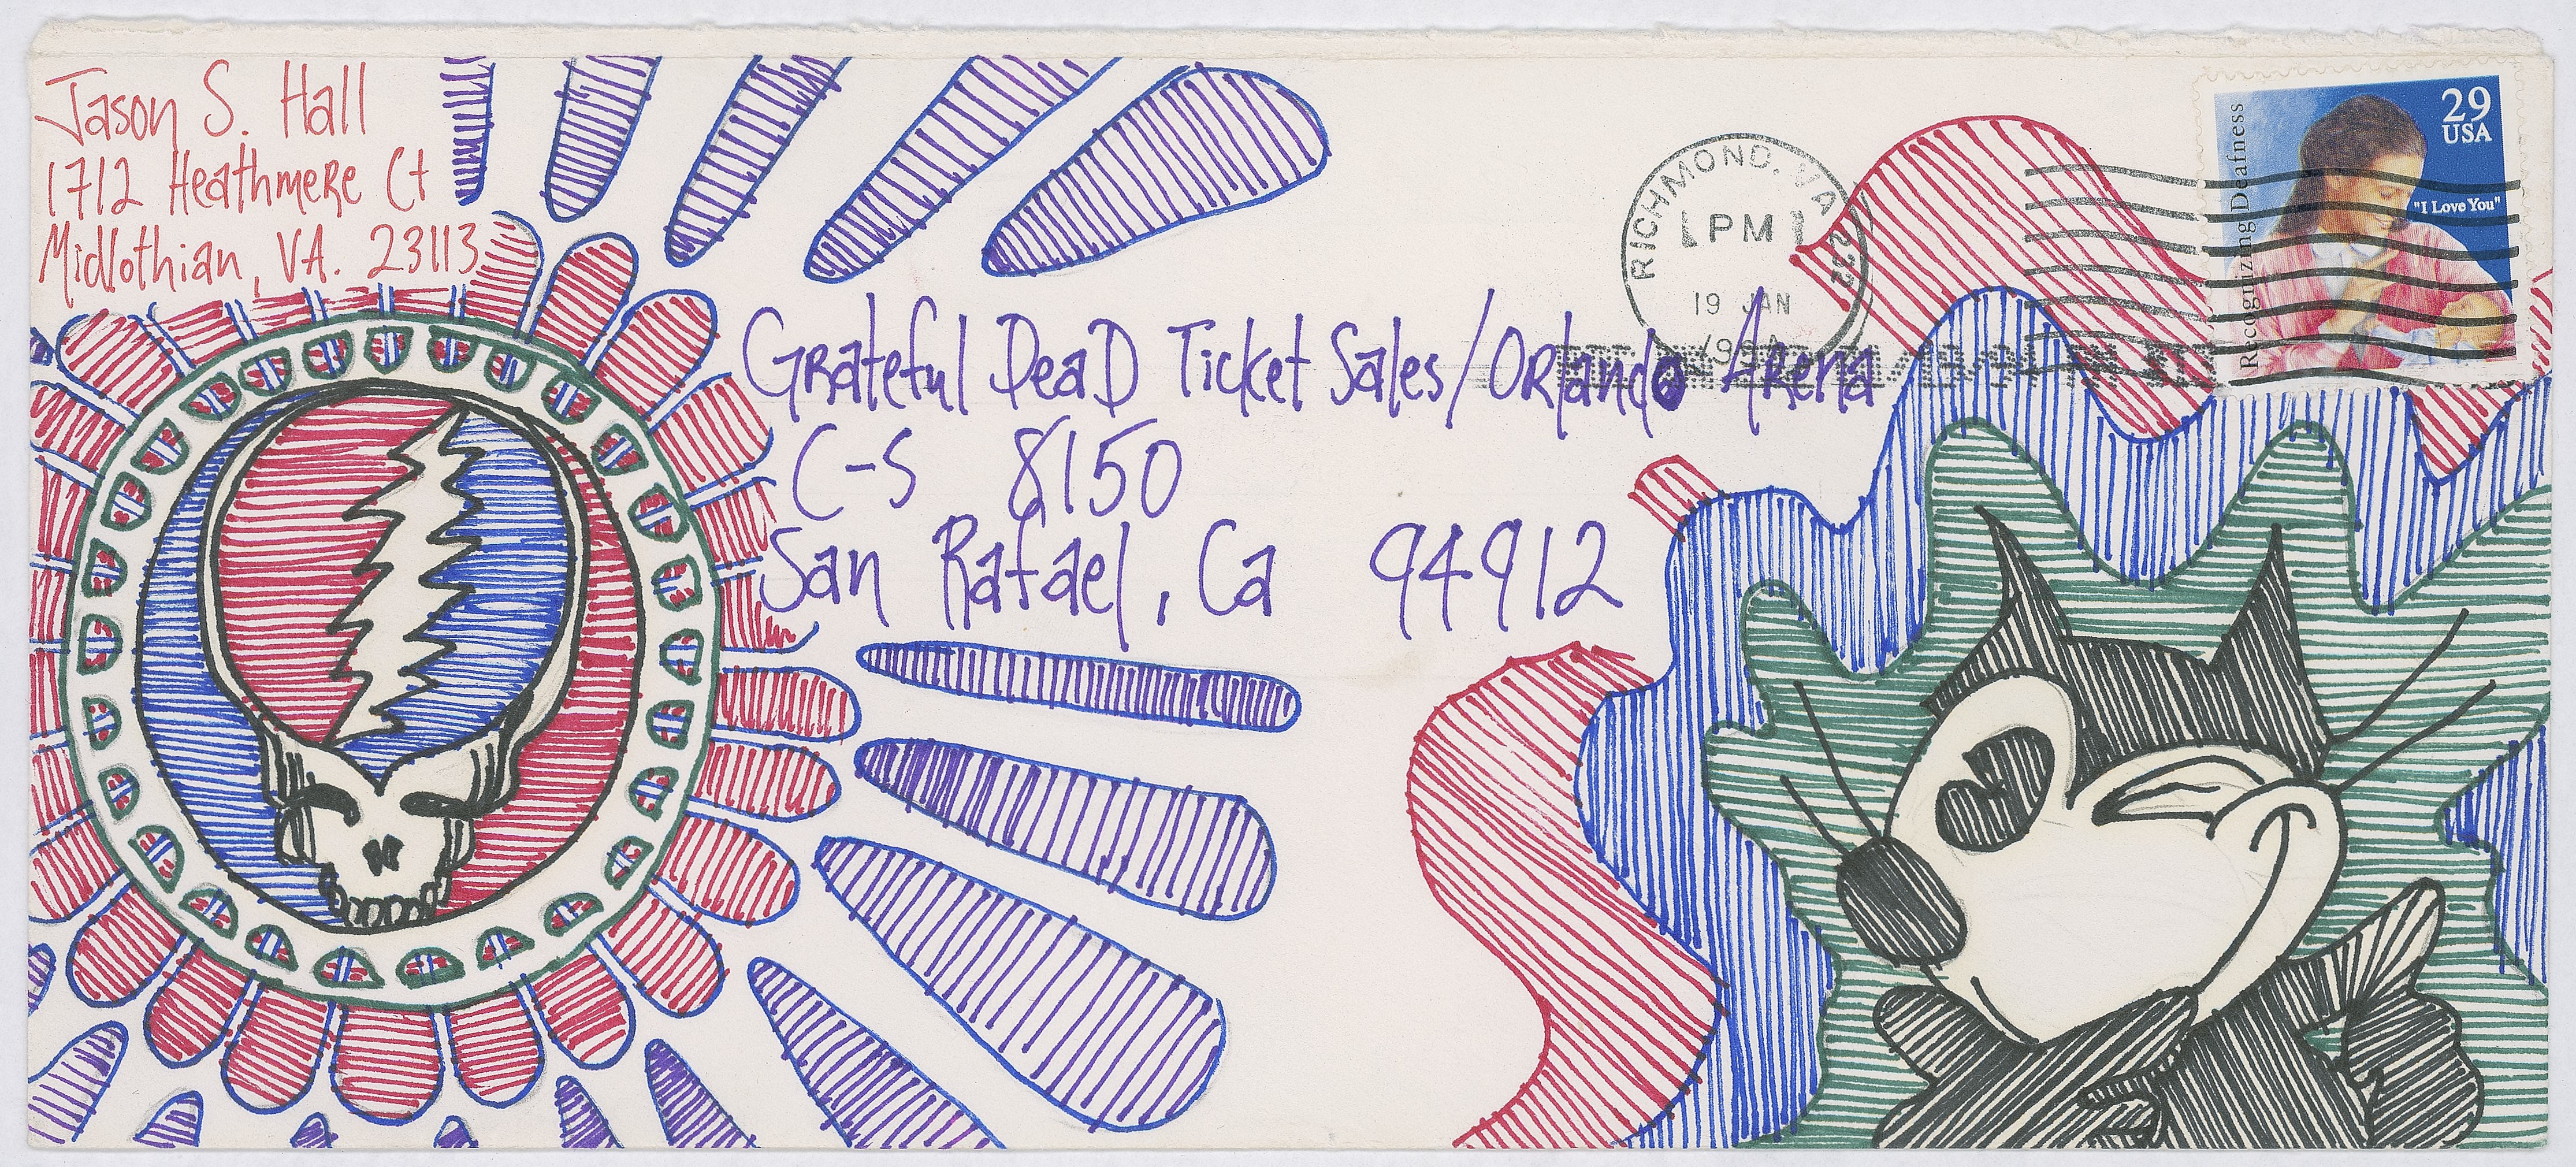 Jason S. Hall
1712 Heathmere Ct
Midlothian, VA. 23113
29
USA
"I Love You"
Recognizing Deafness
RICHMOND, VA 232
PM
19 JAN
Grateful Dead Ticket Sales/Orlando Arena
C-S 8150
San Rafael, Ca 94912